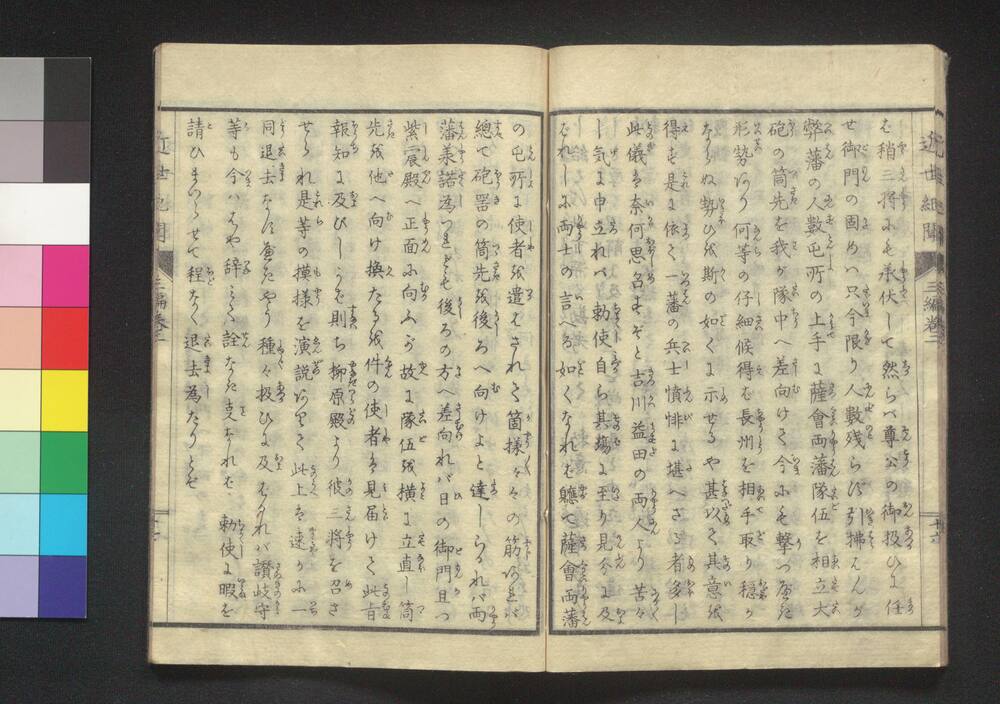 近世紀聞 三編卷二
は稍三將にも承伏して然らバ尊公の御扱ひに任
せ御門の固めハ只今限り人數殘らず引拂はんが
弊藩の人數屯所の上手に薩會両藩隊伍を相立大
砲の筒先を我が隊中へ差向けて今にも擊つべき
形勢あり何等の仔細候得ば長州を相手取り穩か
ならぬ勢ひを斯の如くに示せるや甚以て其意を
得ず是に依て一藩の兵士憤悱に堪へざる者多し
此儀は奈何思召すぞと吉川益田の両人より苦々
し気に申立れバ 勅使自ら其塲に至り見分に及
ばれしに両士の言へる如くなれば軈て薩會両藩
十六
の屯所に使者を遣はされて箇樣々々の筋あれバ
總て砲器の筒先を後ろへ向けよと達しられバ両
藩義諾なつれども後ろの方へ差向れバ日の御門且つ
紫宸殿へ正面に向ふが故に隊伍を横に立直し筒
先を他へ向け換たるを件の使者は見届けて此旨
報知に及びしかば則ち柳原殿より彼三將を召さ
せられ是等の摸樣を演說ありて此上は速かに一
同退去なすべきやう種々扱ひに及ばれバ讚岐守
等も今ハはや辭むに詮なき克なれば 勅使に暇を
請ひまゐらせて程なく退去為たりとぞ
近世紀聞 三編卷二